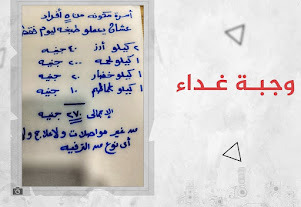 أسرة مكونة من ٥ أفراد
عشان يعملو طبخة ليوم فقط
٢ كيلو أرز ٤٠ جنيه
١ كيلو لحمة ٢٠٠ جنيه
١ كيلو خضار ٢٠ جنيه
١ كيلو طماطم ١٠ جنيه
الإجمالى ٢٧٠ جنيه
من غير مواصلات ولا علاج ولا
أى نوع من الترفيه
وجبة غداء